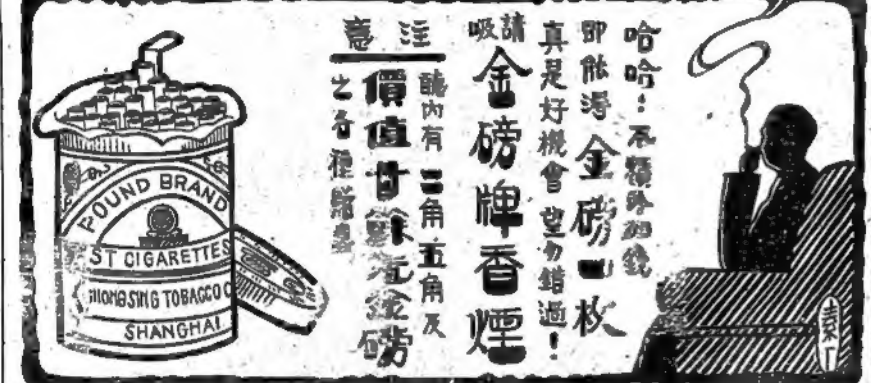 哈哈！不加錢
即能得金磅一枚
真是好機會望勿錯過！
請吸
金磅牌香煙
注意
聽內有二角五角及
價值廿餘元金磅
之各種
POUND BRAND
ST CIGARETTES
HONGSING TOBACCO C
SHANGHAI